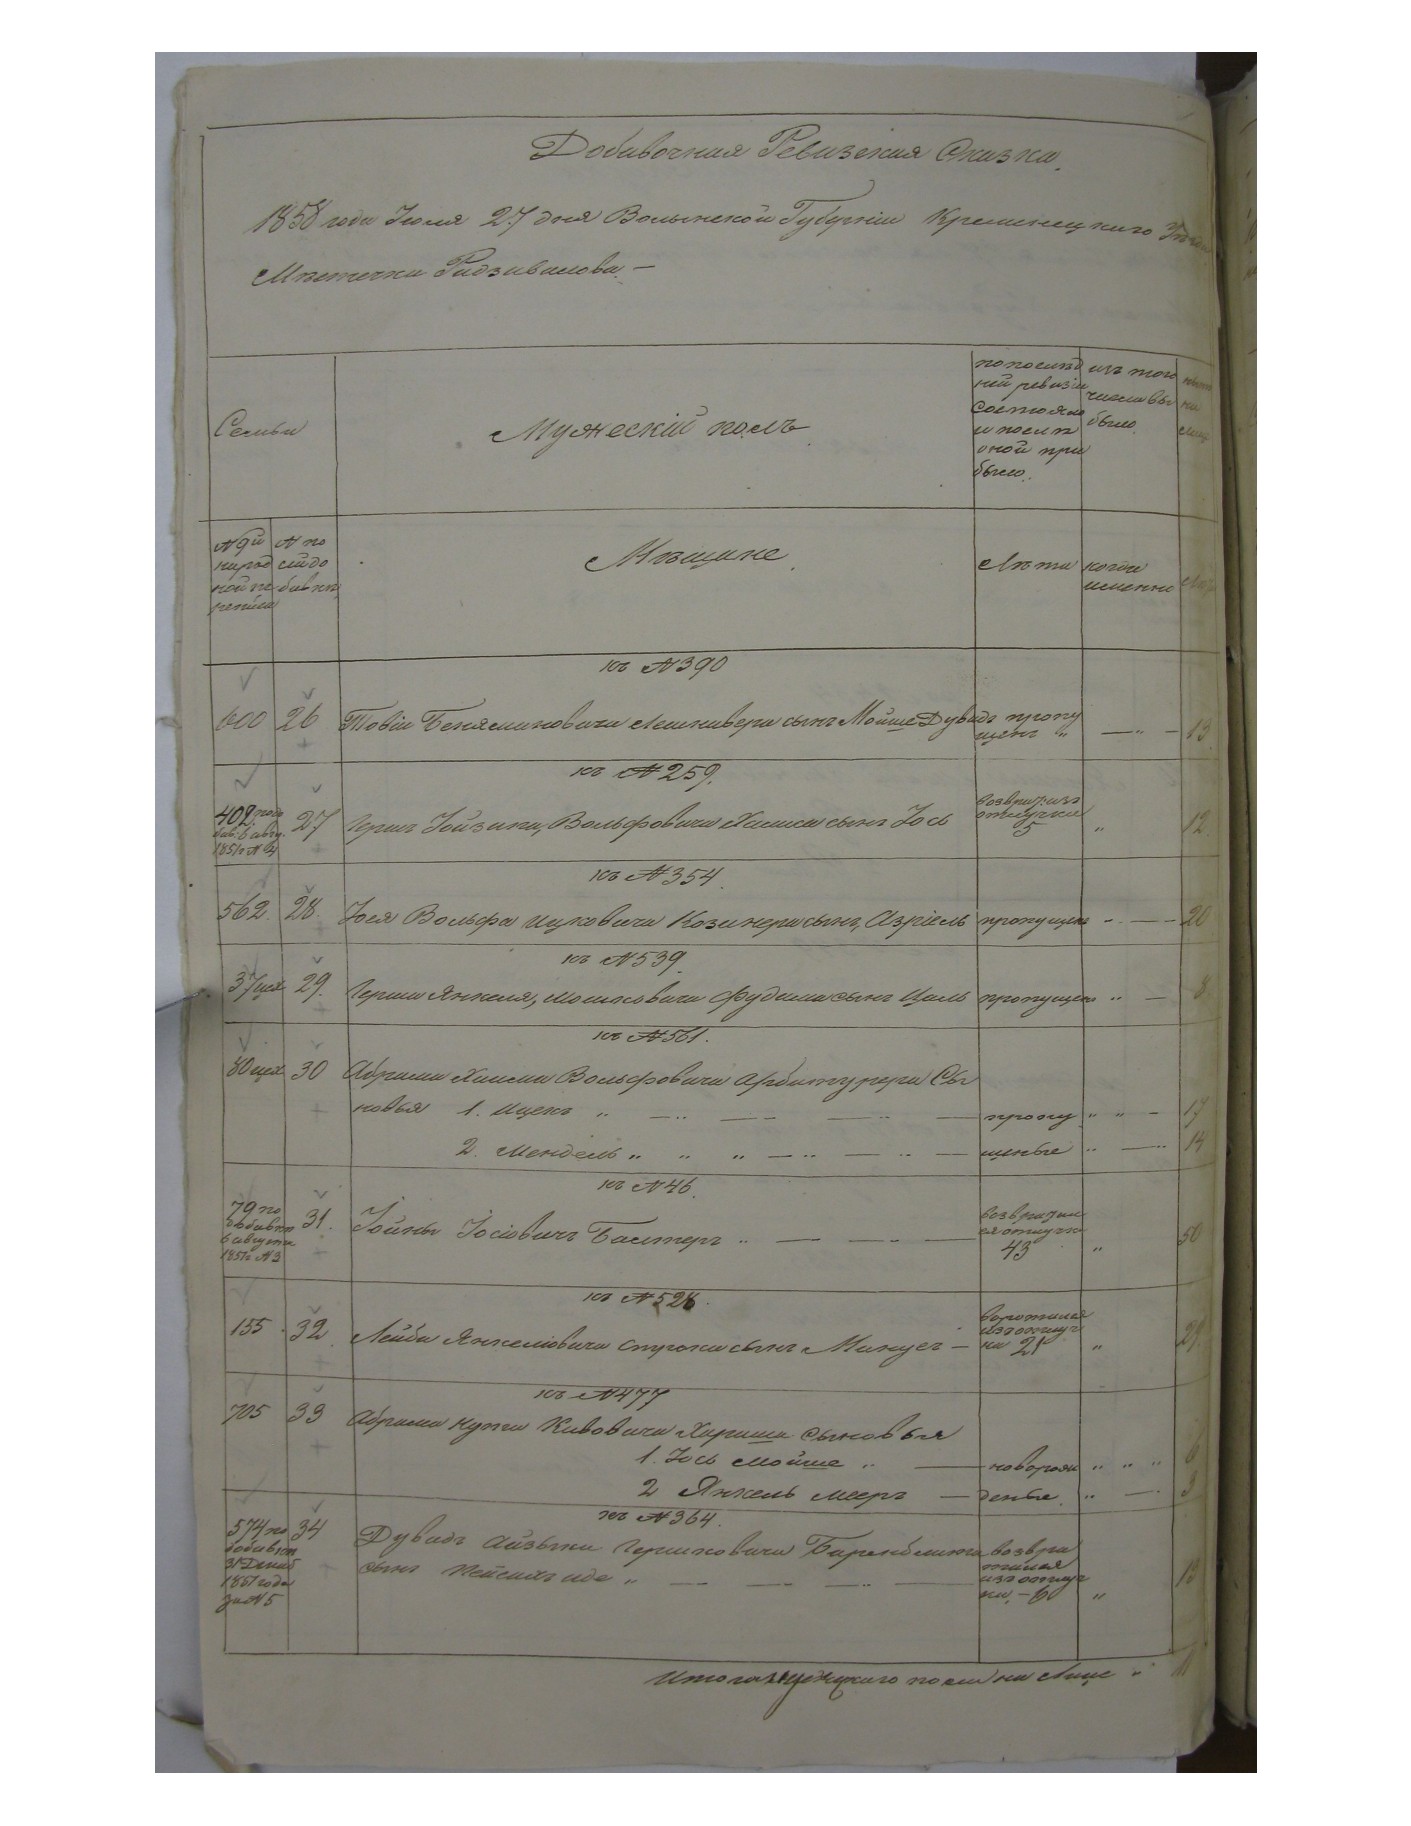 Добавочная Ревизская Сказка.
1858 года Іюля 27 дня Волынской Губерніи Кременецкаго
Мѣстечка Радзивилова. —
Семьи
Мужескій полъ
по послѣд
ней ревизіи
состояло
и послѣ
оной при
было.
изъ того
числа вы
было.
на
№ по
сей до
бавкѣ
Мѣщане
Лѣта
когда
именно
къ №390
600 26 Товіи Беняминовича Лешнивера сынъ Мойше Дувидъ пропу
щенъ „ — „ — 13
къ №259.
402 по до
бав. 6 авгу.
1851 г №3
27 Герша Іойзипа, Вольфовича Хаиса сынъ Іось
возврат. изъ
отлучки
5 „ 12.
къ №354.
562. 28. Іося Вольфа Ицковича Козинера сынъ, Азріель пропущенъ „ — 20
къ №539.
37 цех 29. Герша Янкеля, Мошковича Фудима сынъ Цаль пропущенъ „ — 8
къ №561.
80 цех 30 Абрама Хаима Вольфовича Арбитурера Сы
новья 1. Ицекъ „ — „ — — пропу „ „ — 17
2. Мендель „ „ „ — „ — „ — щенные „ — „ 14
къ №46.
79 по
добавкѣ
6 августа
1851 г №3
31. Іойны Іосіовичъ Балтеръ „ — „ —
возвратил
ся отлучки
43 „ 50
къ №528.
155 32 Лейба Янкеліовича Строка сынъ Манусъ —
воротился
изъ отлуч
ки 21 „ 29
къ №477
705 33 Абрама Нухима Кивовича Хариша сыновья
1. Іось Мойше „ — новорож „ „ „ 6
2 Янкель Мееръ — денные. „ — „ 3
къ №364.
574 по
добавкѣ
31 Декаб
1851 года
за №5
34 Дувидъ Айзыка Гершковича Баренблита
сынъ Пейсахъ Иде „ — — „ —
возвра
тился
изъ отлуч
ки. — 6 „ 13
Итого мужескаго пола на Лице „ 11